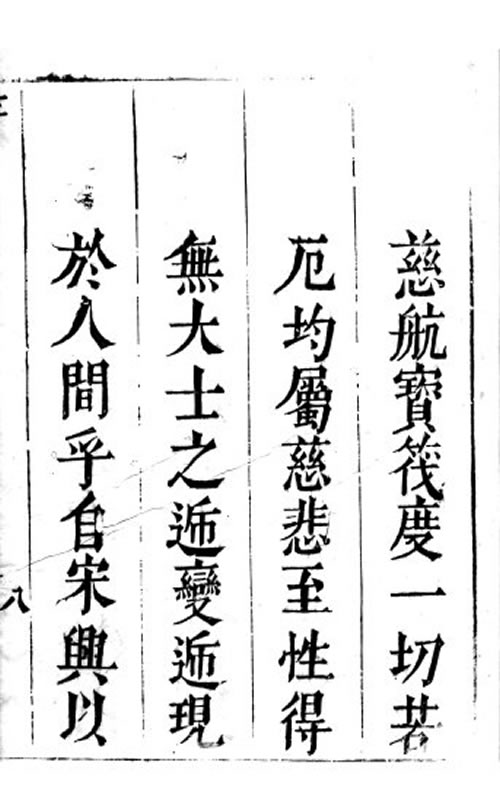 慈航寶筏度一切苦
厄均屬慈悲至性得
無大士之逓變逓現
於人間乎自宋興以
八